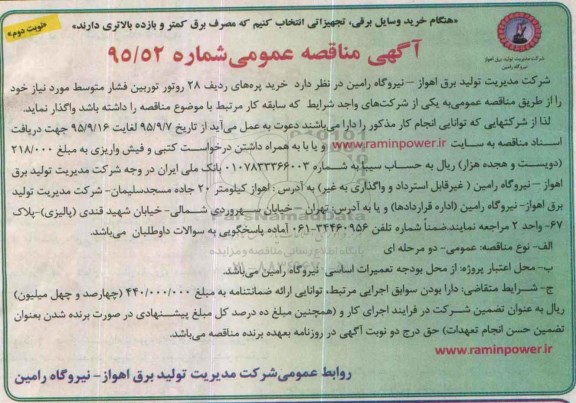 «هنگام خرید وسایل برقی، تجهیزاتی انتخاب کنیم که مصرف برق کمتر و بازده بالاتری دارند»
«نوبت دوم»
آگهی مناقصه عمومی شماره ۹۵/۵۲
شرکت مدیریت تولید برق اهواز
نیروگاه رامین
شرکت مدیریت تولید برق اهواز – نیروگاه رامین در نظر دارد خرید پره‌های ردیف ۲۸ روتور توربین فشار متوسط مورد نیاز خود
را از طریق مناقصه عمومی‌به یکی از شرکت‌های واجد شرایط که سابقه کار مرتبط با موضوع مناقصه را داشته باشد واگذار نماید.
لذا از شرکتهایی که توانایی انجام کار مذکور را دارا می‌باشند دعوت به عمل می‌آید از تاریخ ۹۵/۹/۷ لغایت ۹۵/۹/۱۶ جهت دریافت
اسناد مناقصه به سایت www.raminpower.ir و یا با به همراه داشتن درخواست کتبی و فیش واریزی به مبلغ ۲۱۸/۰۰۰
(دویست و هجده هزار) ریال به حساب سیبا به شماره ۰۱۰۷۸۳۳۳۶۶۰۰۳ بانک ملی ایران در وجه شرکت مدیریت تولید برق
اهواز – نیروگاه رامین ( غیرقابل استرداد و واگذاری به غیر) به آدرس : اهواز کیلومتر ۲۰ جاده مسجدسلیمان- شرکت مدیریت تولید
برق اهواز- نیروگاه رامین (اداره قراردادها) و یا به آدرس: تهران – خیابان سهروردی شمالی- خیابان شهید قندی (پالیزی)-پلاک
۶۷- واحد ۲ مراجعه نمایند.ضمناً شماره تلفن ۳۴۴۶۰۹۵۶-۰۶۱ آماده پاسخگویی به سوالات داوطلبان می‌باشد.
الف- نوع مناقصه: عمومی- دو مرحله ای
ب- محل اعتبار پروژه: از محل بودجه تعمیرات اساسی نیروگاه رامین می‌باشد.
ج- شرایط متقاضی: دارا بودن سوابق اجرایی مرتبط، توانایی ارائه ضمانتنامه به مبلغ ۴۴۰/۰۰۰/۰۰۰ (چهارصد و چهل میلیون)
ریال به عنوان تضمین شرکت در فرایند اجرای کار و (همچنین مبلغ ده درصد کل مبلغ پیشنهادی در صورت برنده شدن بعنوان
تضمین حسن انجام تعهدات) حق درج دو نوبت آگهی در روزنامه بعهده برنده مناقصه می‌باشد.
www.raminpower.ir
روابط عمومی شرکت مدیریت تولید برق اهواز- نیروگاه رامین